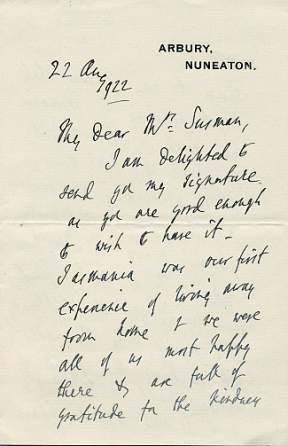 ARBURY,
NUNEATON.
22 Aug
1922
My dear Mr. Susman,
I am delighted to
send you my signature
as you are good enough
to wish to have it.
Tasmania was our first
experience of living away
from home & we were
all of us most happy
there & are full of
gratitude for the kindness